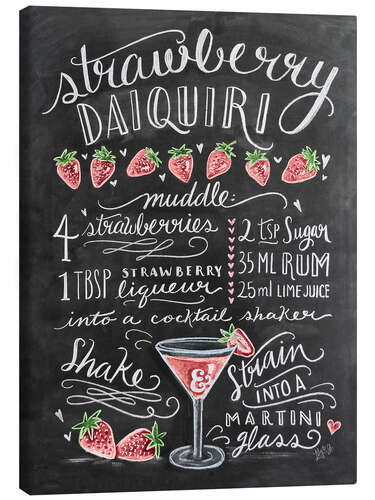 strawberry
DAIQUIRI
muddle:
4 strawberries
1 TBSP STRAWBERRY liqueur
2 tsp Sugar
35 ML RUM
25 ml LIME JUICE
into a cocktail shaker
Shake
&
Strain
INTO A
MARTINI
glass